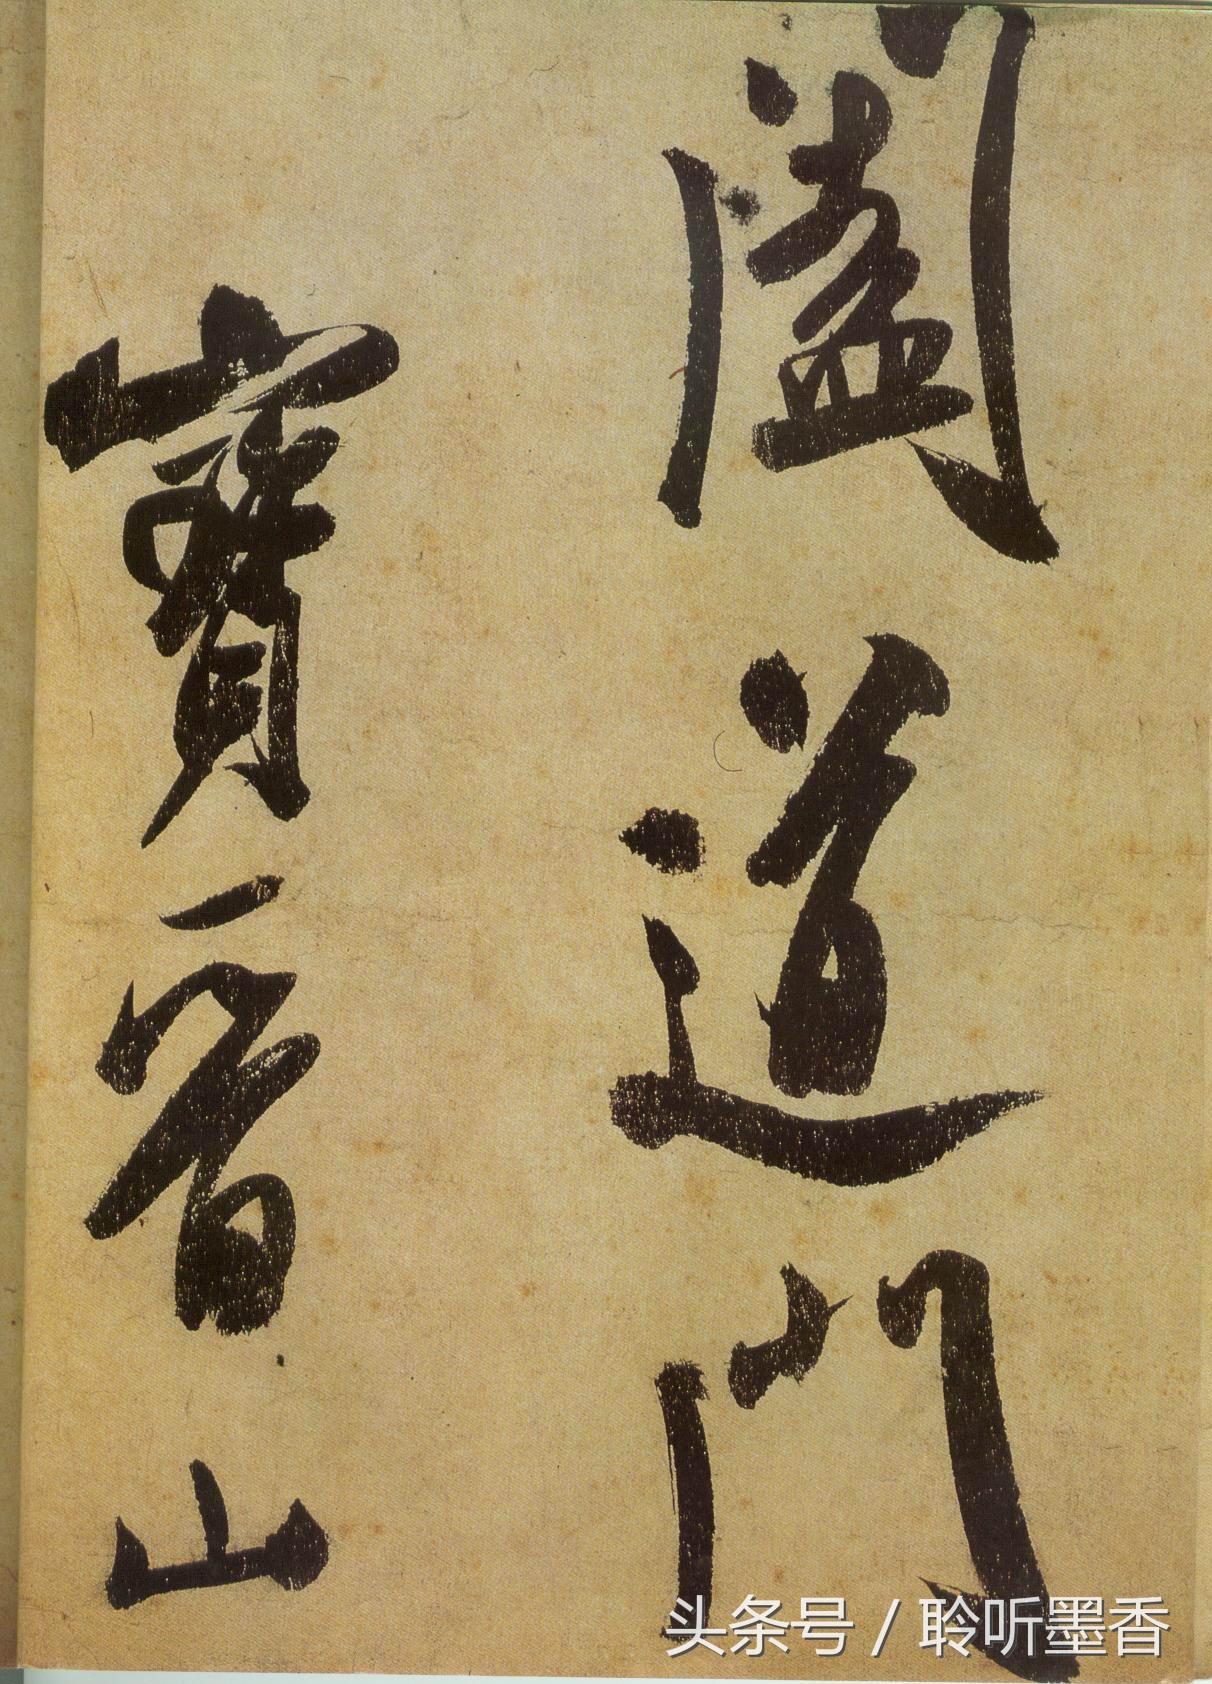 闔道門
寶晉山
头条号 / 聆听墨香